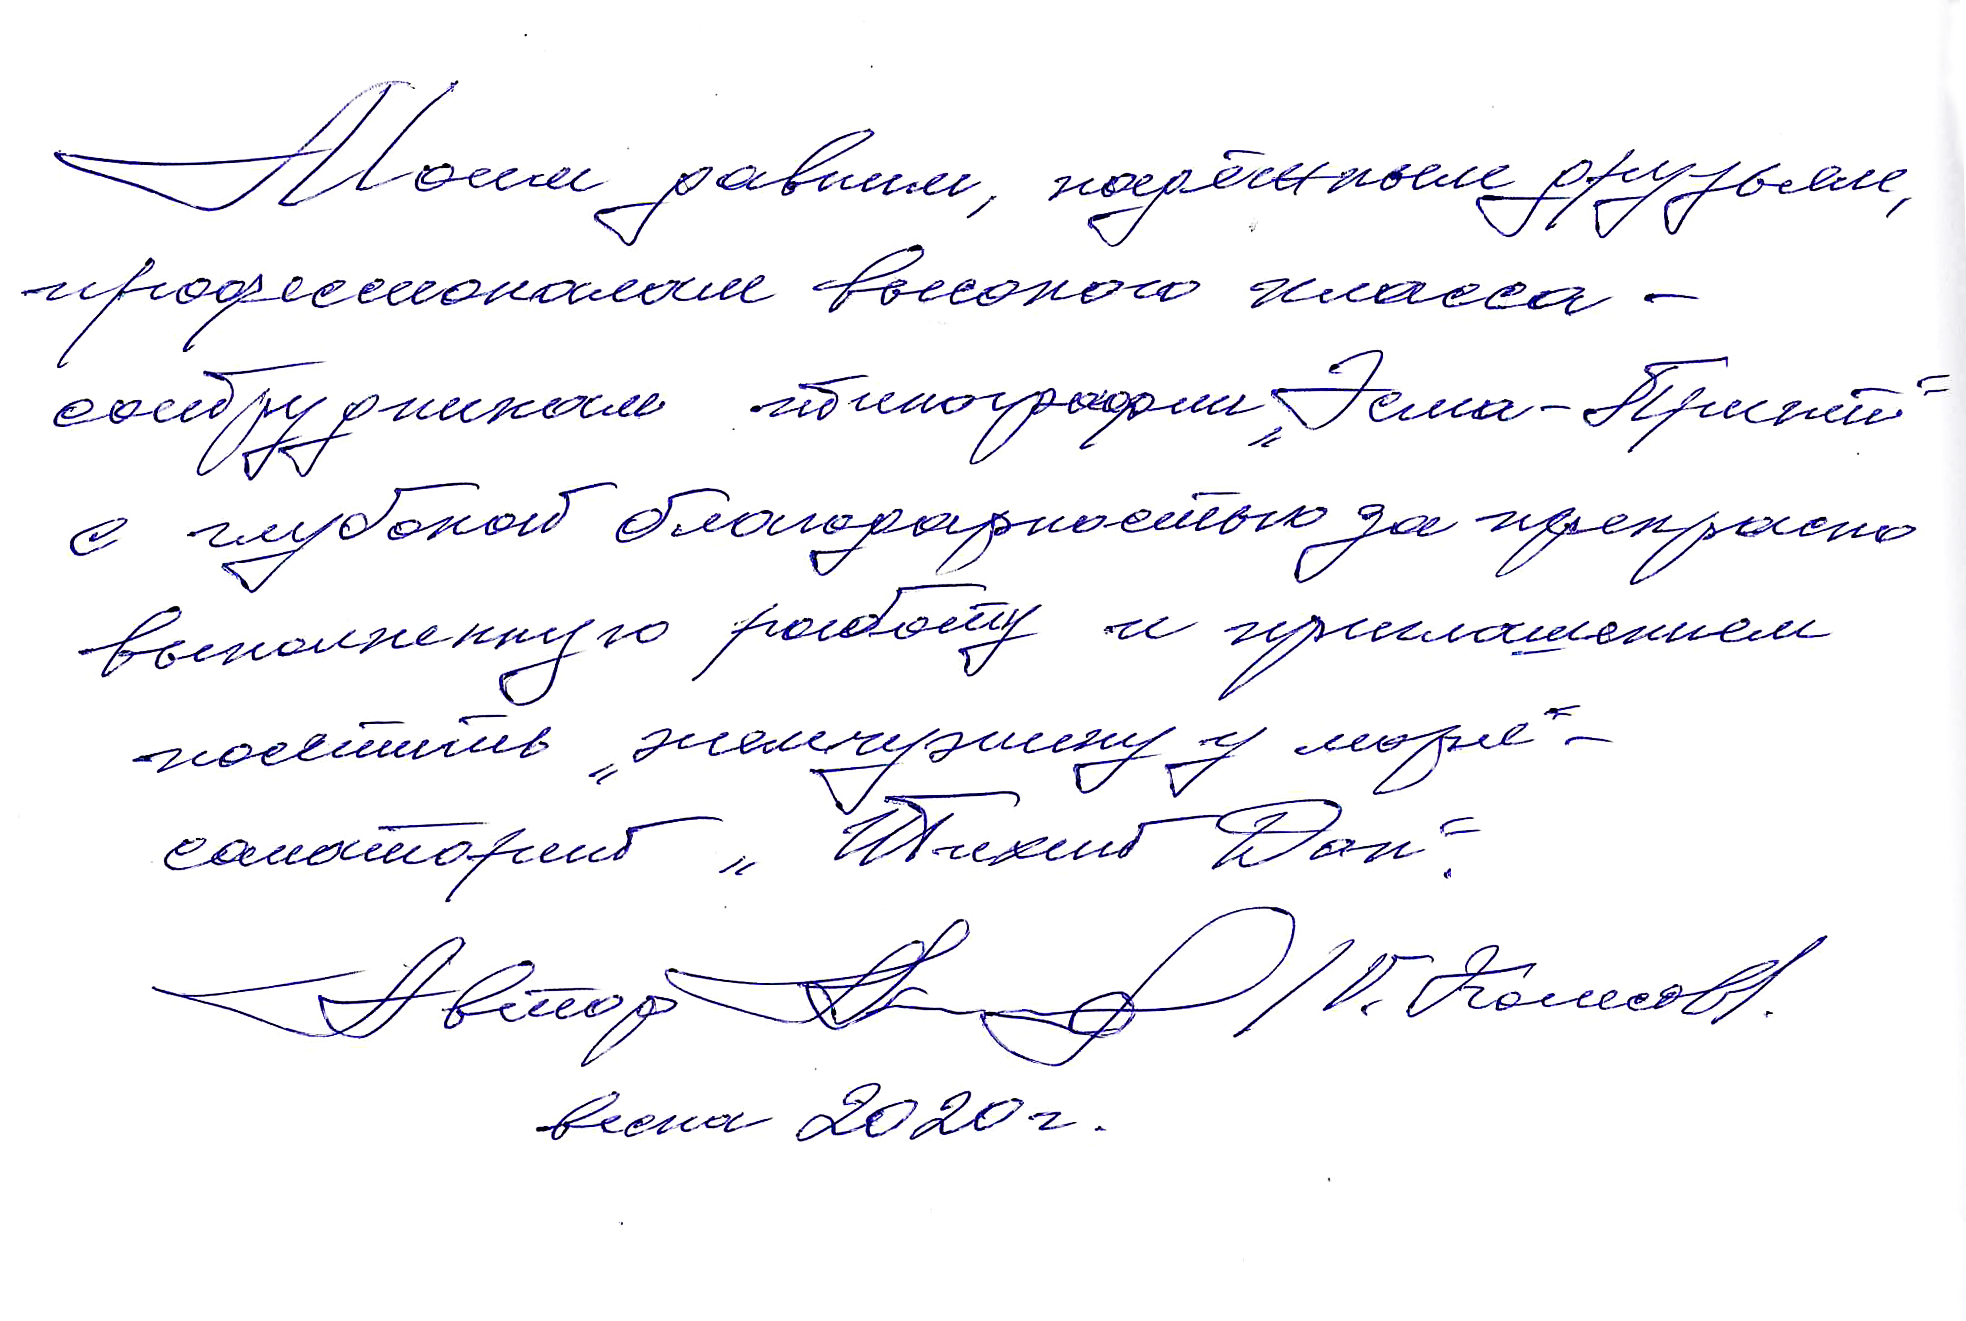 Моим давним, надёжным друзьям,
профессионалам высокого класса -
сотрудникам типографии „Эсма-Принт"
с глубокой благодарностью за прекрасно
выполненную работу и приглашением
посетить „жемчужину у моря" -
санаторий „Тихий Дон".
Автор /В. Колесов/.
весна 2020 г.